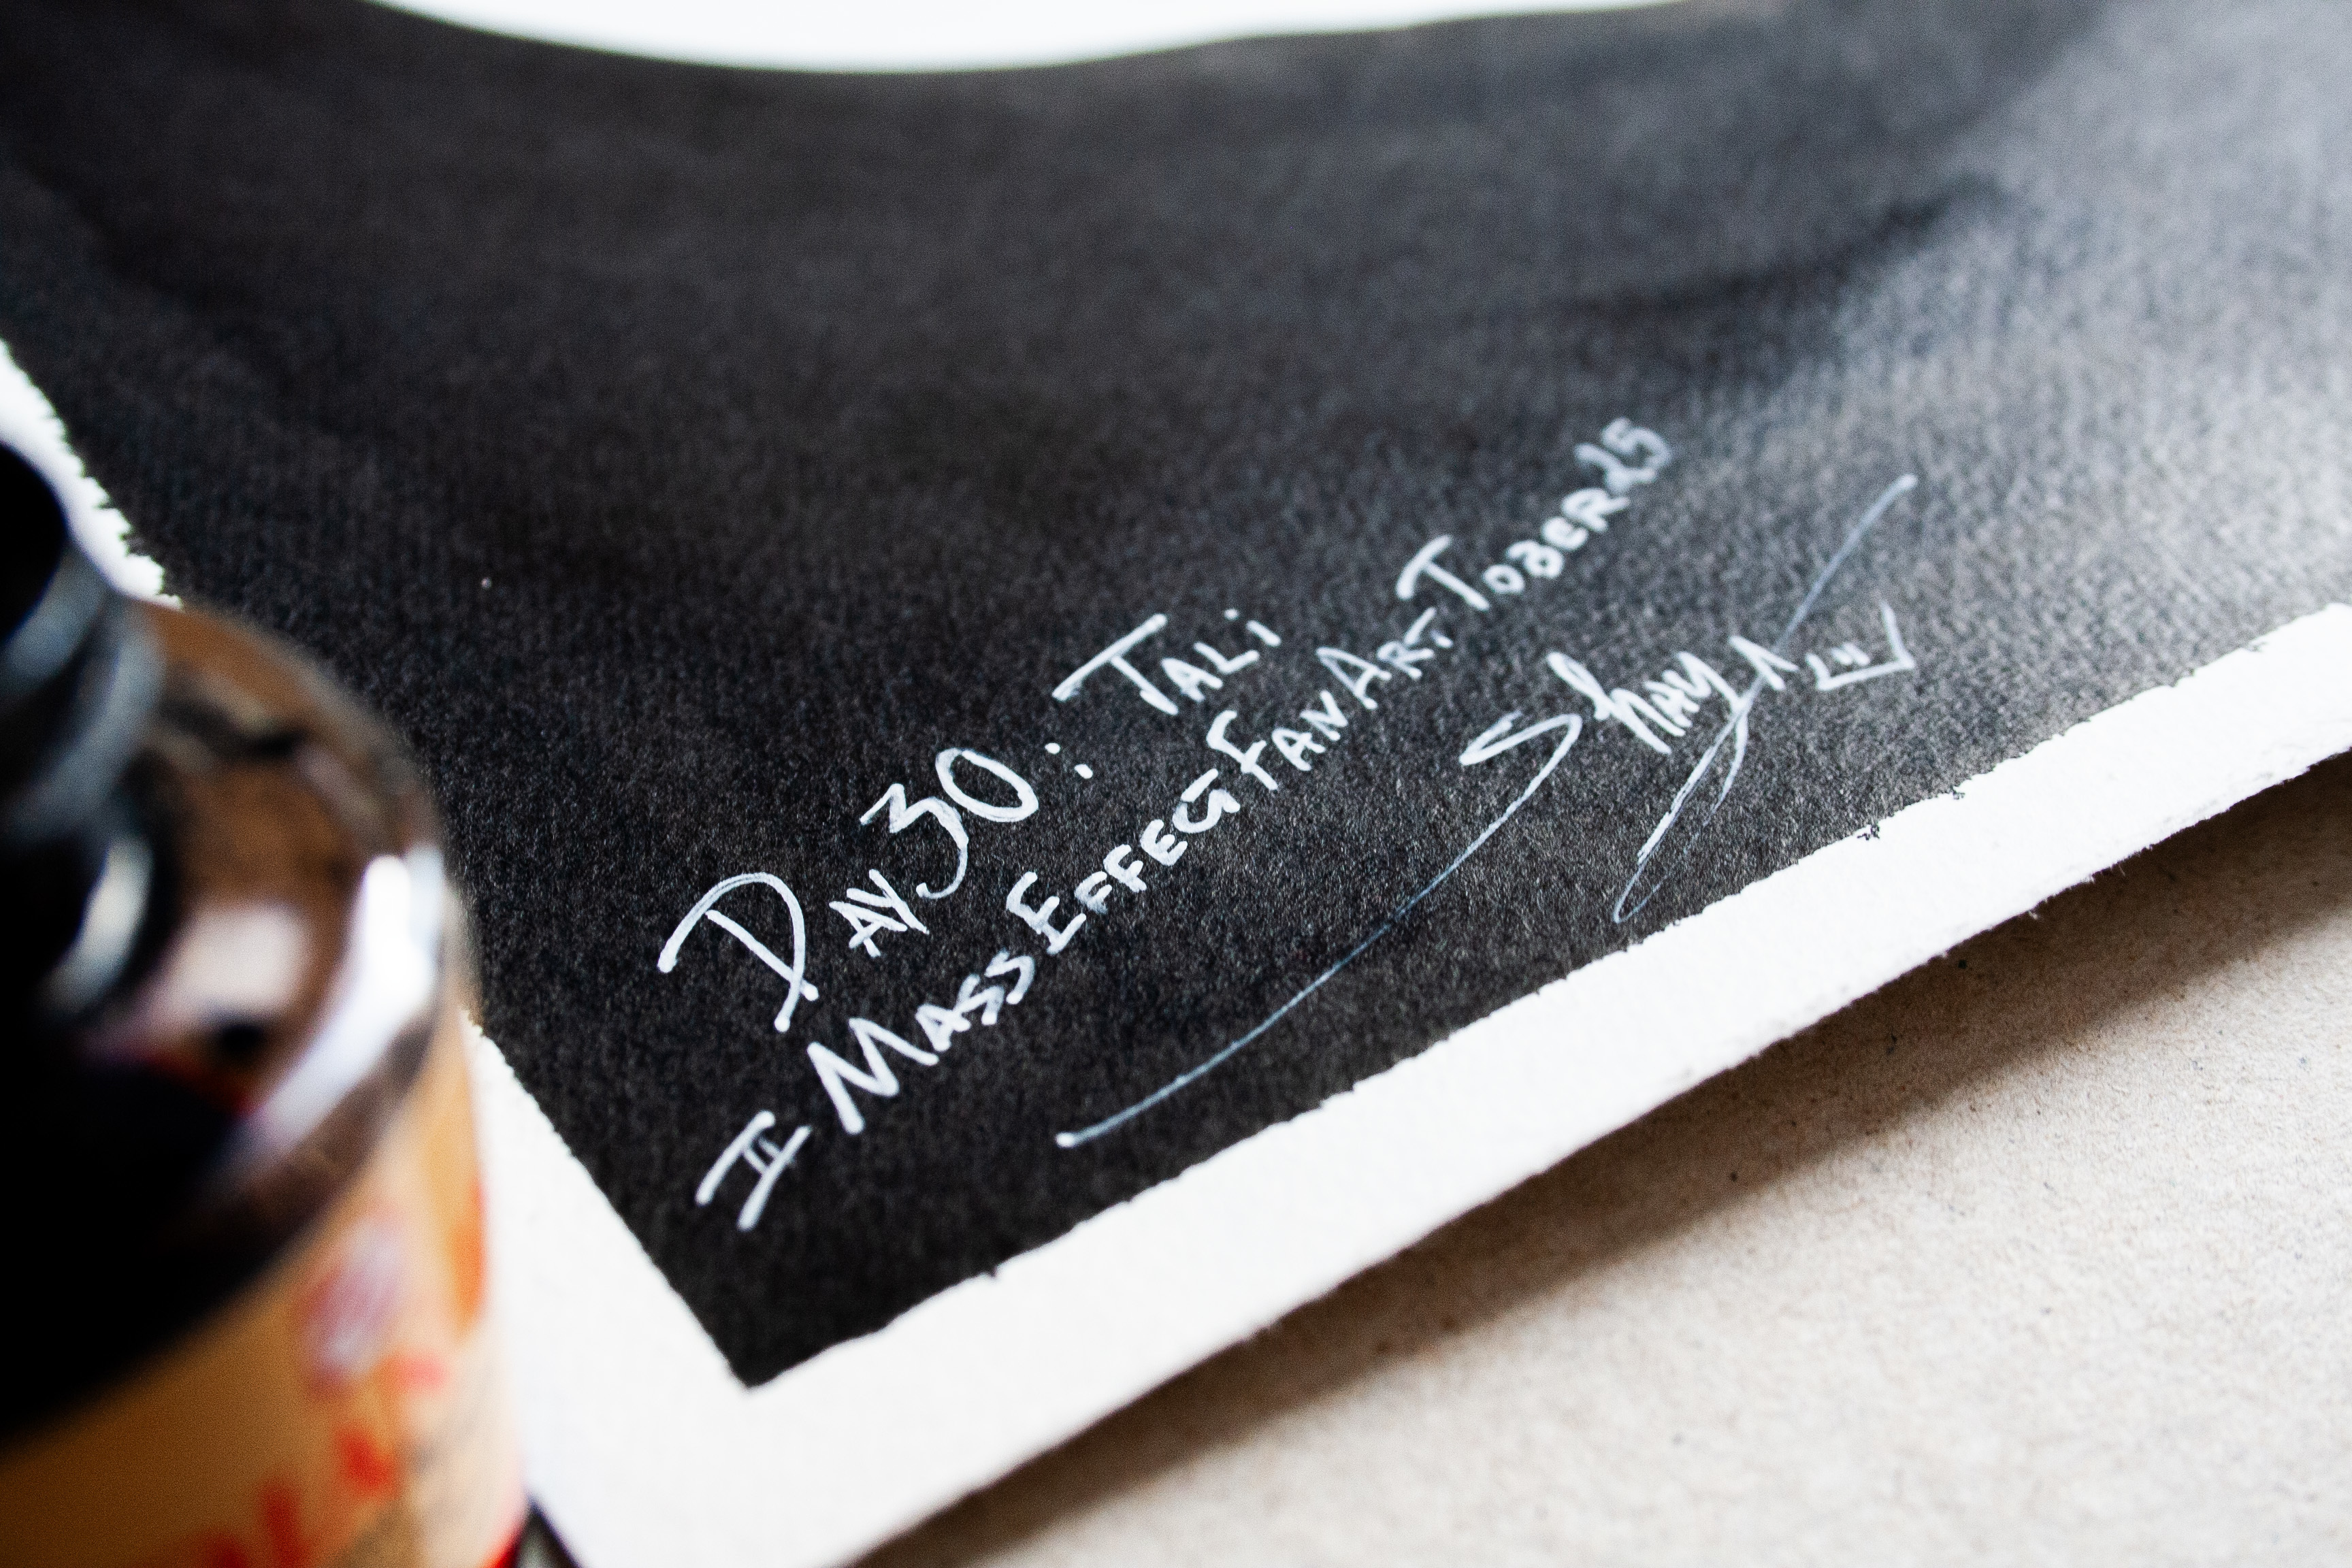 Day 30: Tali
#MassEffectFanArt-Tober25